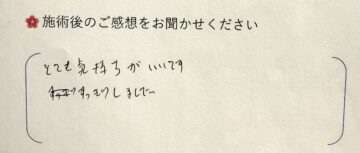 施術後のご感想をお聞かせください
とても気持ちがいいです
すっきりしました…